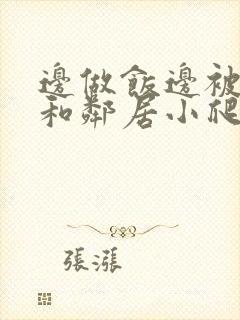 邊做飯邊被
和鄰居小爬
張漲